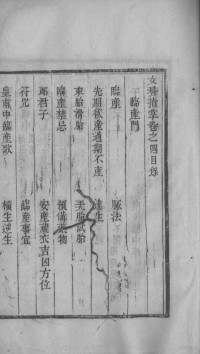 女科指掌卷之四目錄
臨產門
臨產 脈法
先期欲產過期不產 達生
束胎滑胎 弄胎試胎
臨產禁忌 預備藥物
郎君子 安產藏衣吉凶方位
符咒 臨產事宜
臨產歌 橫生逆生